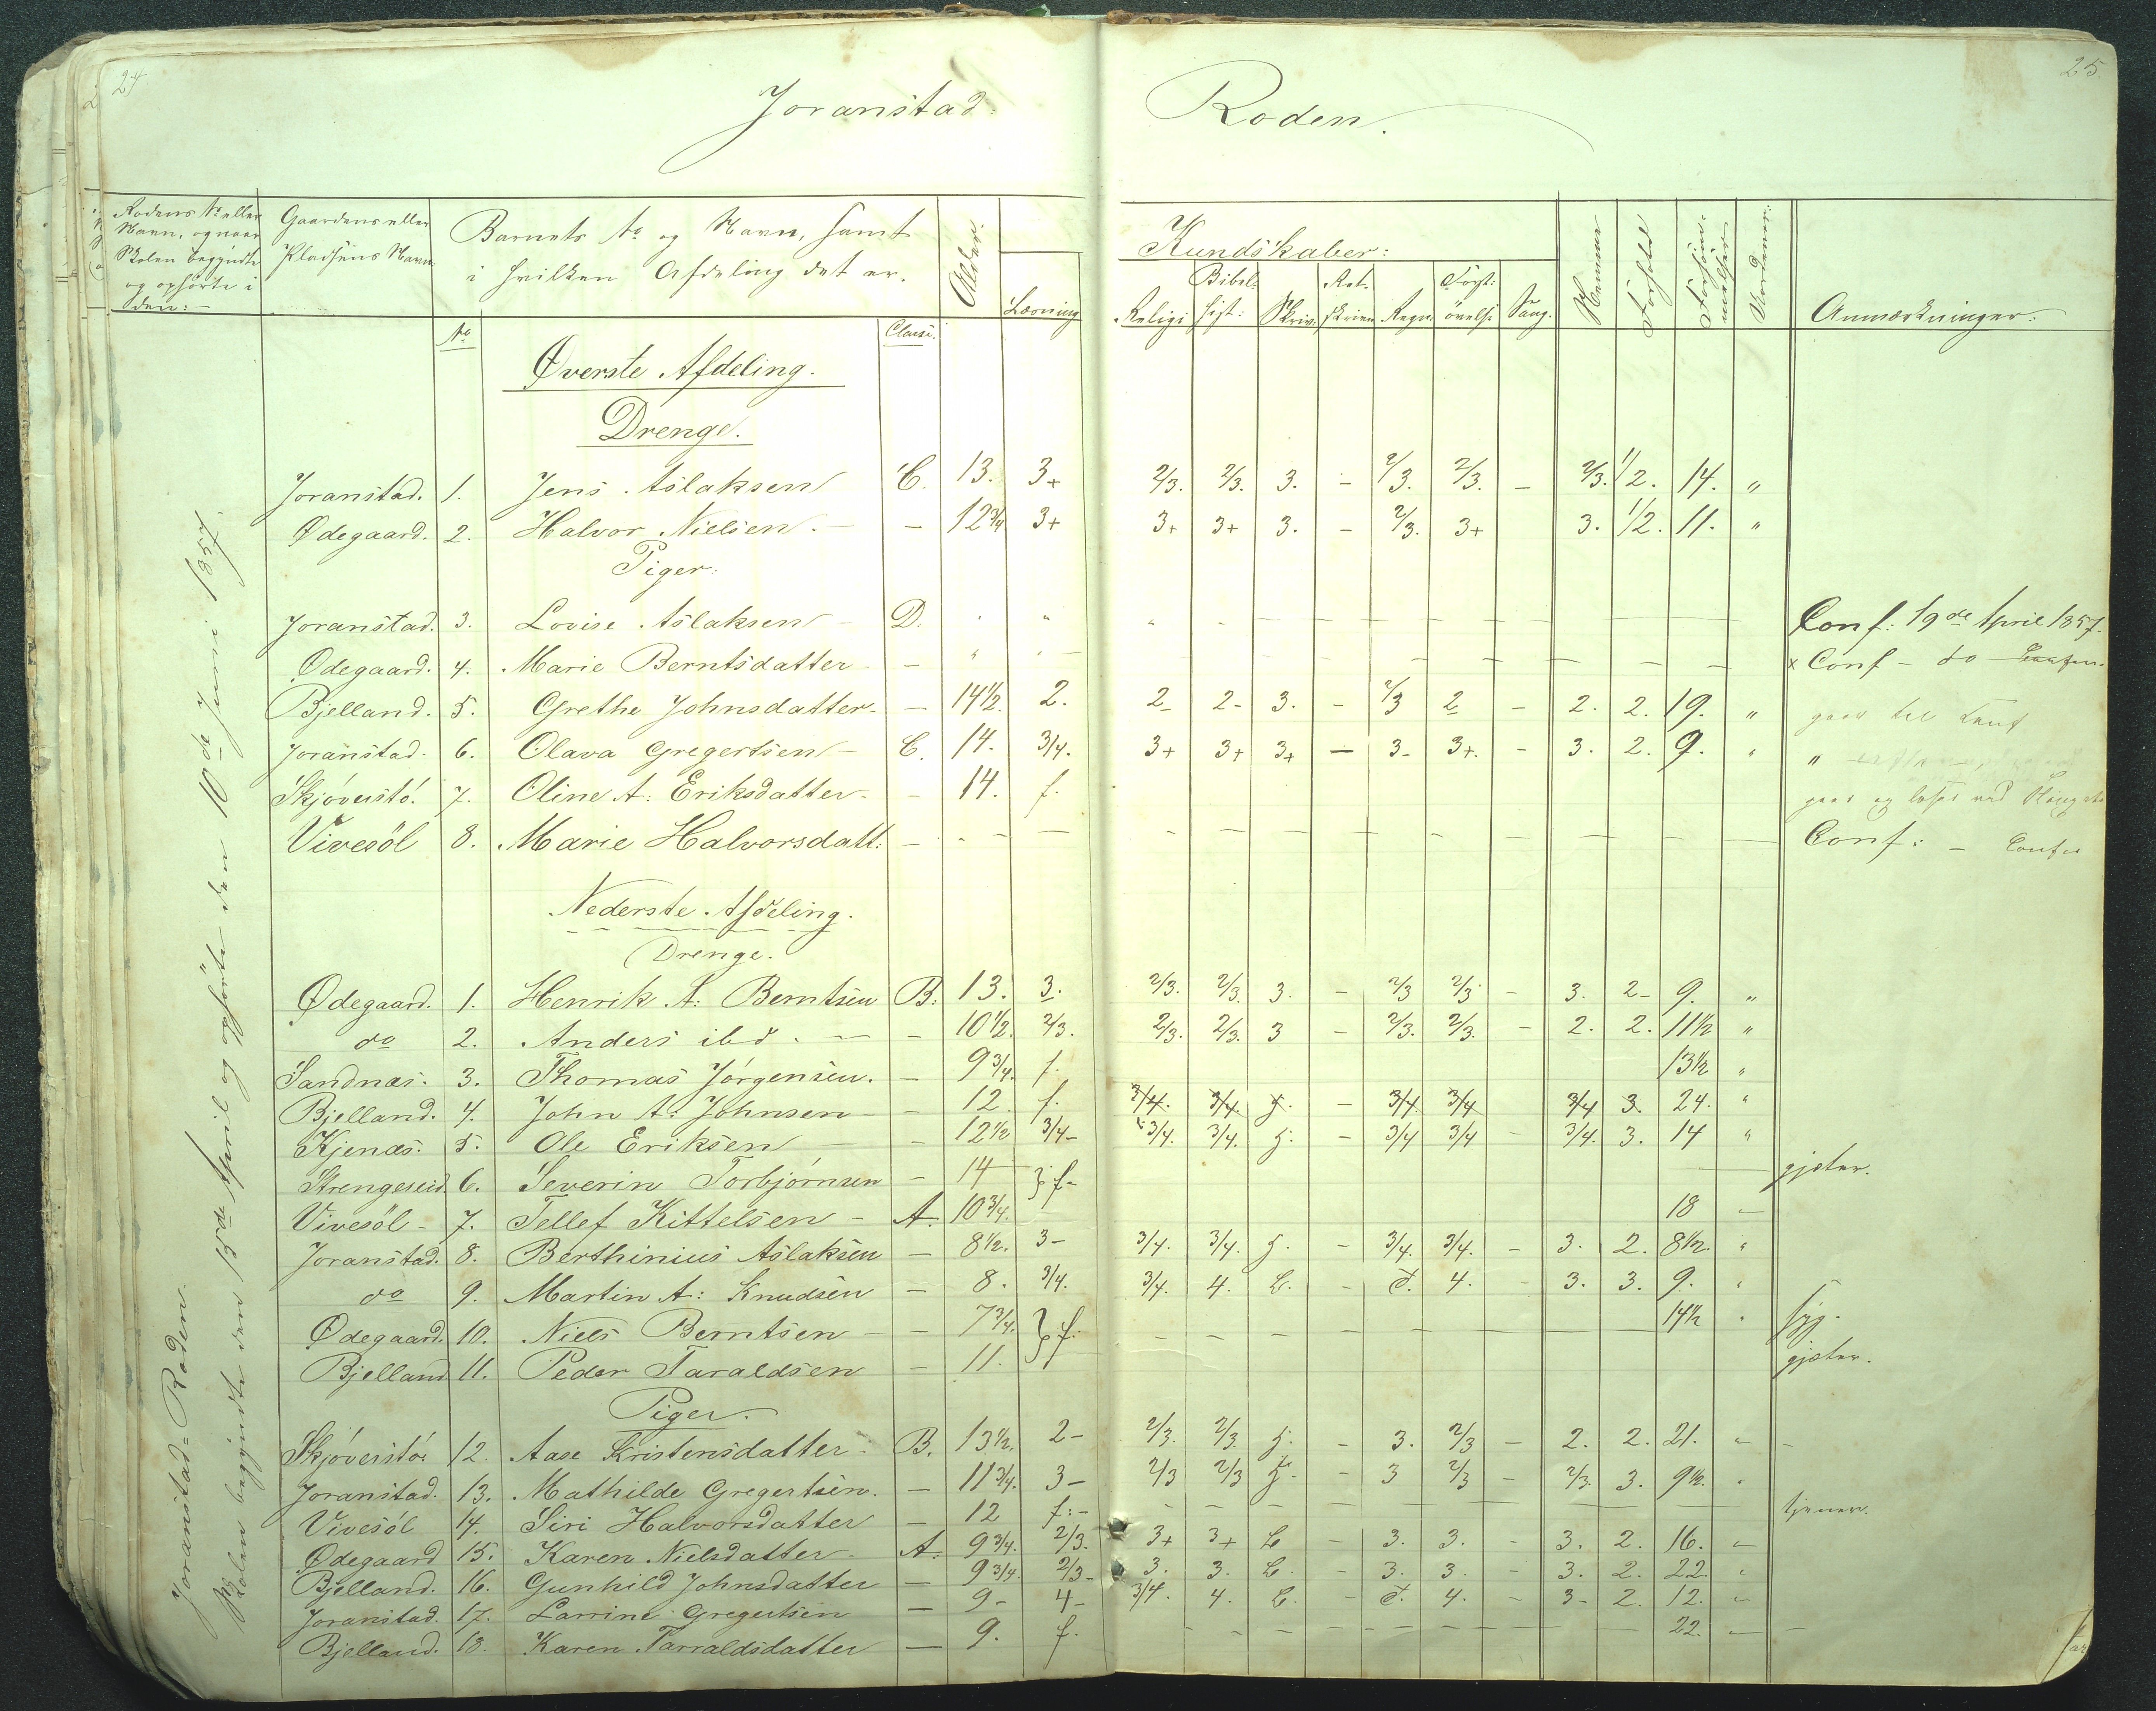 24
25.
Joranstad- Roden.
Rodens No eller Navn, og naar Skolen begyndte og ophörte i den:-
Gaardens eller Pladsens Navn
Barnets No og Navn, samt i hvilken Afdeling det er.
Alder.
Kundskaber:
Læsning
Religi
Bibel. hist:
Skriv.
Ret. skrivn
Regn.
Forst: övelse
Sang.
Nemme
Forhold
Forsömmelser
Anmærkninger.
No
Classe.
Øverste Afdeling.
Drenge.
Joranstad. 1. Jens Aslaksen C. 13. 3+ 2/3. 2/3. 3. - 2/3. 2/3. - 2/3. 1/2. 14. "
Ødegaard. 2. Halvor Nielsen. - - 12 3/4 3+ 3+ 3+ 3. - 2/3. 3+ 3. 1/2. 11. "
Piger:
Joranstad. 3. Lovise Aslaksen - D. Conf: 19de April 1857.
Ødegaard. 4. Marie Berntsdatter - - x Conf - do
Bjelland. 5. Grethe Johnsdatter - - 14 1/2. 2. 2- 2- 3. - 2/3 2 - 2. 2. 19. " gaar til
Joranstad. 6. Olava Gregertsen - C. 14. 3/4. 3+ 3+ 3+ - 3- 3+. - 3. 2. 9. "
Skjöverstö. 7. Oline A: Eriksdatter - - 14. f. gaar og
Vivesöl 8. Marie Halvorsdatt: - - - Conf: -
Nederste Afdeling.
Drenge.
Ødegaard. 1. Henrik A: Berntsen B. 13. 3. 2/3. 2/3. 3. - 2/3 2/3 - 3. 2- 9. "
do 2. Anders ibd. - - 10 1/2. 2/3. 2/3. 2/3. 3 - 2/3. 2/3. - 2. 2. 11 1/2 "
Sandnæs. 3. Thomas Jörgensen. - 9 3/4. f. 13 1/2 "
Bjelland. 4. John A: Johnsen - - 12 f. 3/4. 3/4. g. - 3/4. 3/4 3/4 3. 24. "
Kjenæs. 5. Ole Eriksen - - 12 1/2 3/4- 3/4. 3/4. g. - 3/4 3/4 - 3/4. 3. 14 "
Strengereid 6. Severin Torbjörnsen - 14 } f- gjeter.
Vivesöl - 7. Tellef Kittelsen - A. 10 3/4. 18 -
Joranstad. 8. Berthinius Aslaksen - 8 1/2. 3- 3/4. 3/4. g. - 3/4. 3/4. - 3. 2. 8 1/2. "
do 9. Martin A: Knudsen - 8. 3/4. 3/4. 4. b. - d. 4. - 3. 3. 9. "
Ødegaard. 10. Niels Berntsen - - 7 3/4. } f. 14 1/2 " syg.
Bjelland 11. Peder Taraldsen - 11. gjeter.
Piger.
Skjöverstö. 12. Aase Kristensdatter - B. 13 1/2. 2- 2/3. 2/3. g. - 3. 2/3 - 2. 2. 21. " -
Joranstad. 13. Mathilde Gregertsen. - 11 3/4. 3- 2/3 2/3 g. - 3 2/3 - 2/3. 3. 9 1/2. "
Vivesöl 14. Siri Halvorsdatter - 12 f:- tjener.
Ødegaard 15. Karen Nielsdatter - A. 9 3/4. 2/3. 3+ 3+ b - 3. 3. - 3. 2. 16. -
Bjelland. 16. Gunhild Johnsdatter - 9 3/4. 2/3- 3. 3. b. - 3. 3. - 3. 2. 22. "
Joranstad. 17. Larrine Gregertsen - 9- 4- 3/4. 4. b. - d. 4. - 3- 2. 12. -
Bjelland. 18. Karen Tarraldsdatter - 9. f. 22. - -
Joranstad- Roden.
Skolen begyndte den 15de April og ophörte den 10de Juni 1857.